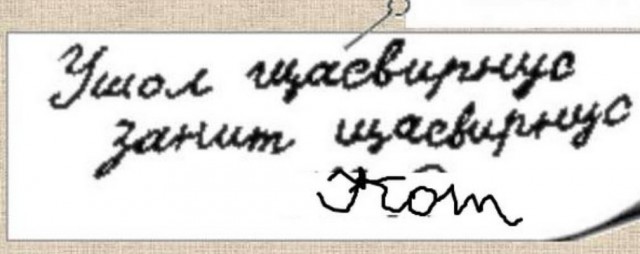 Ушол щасвирнус
занит щасвирнус
Кот